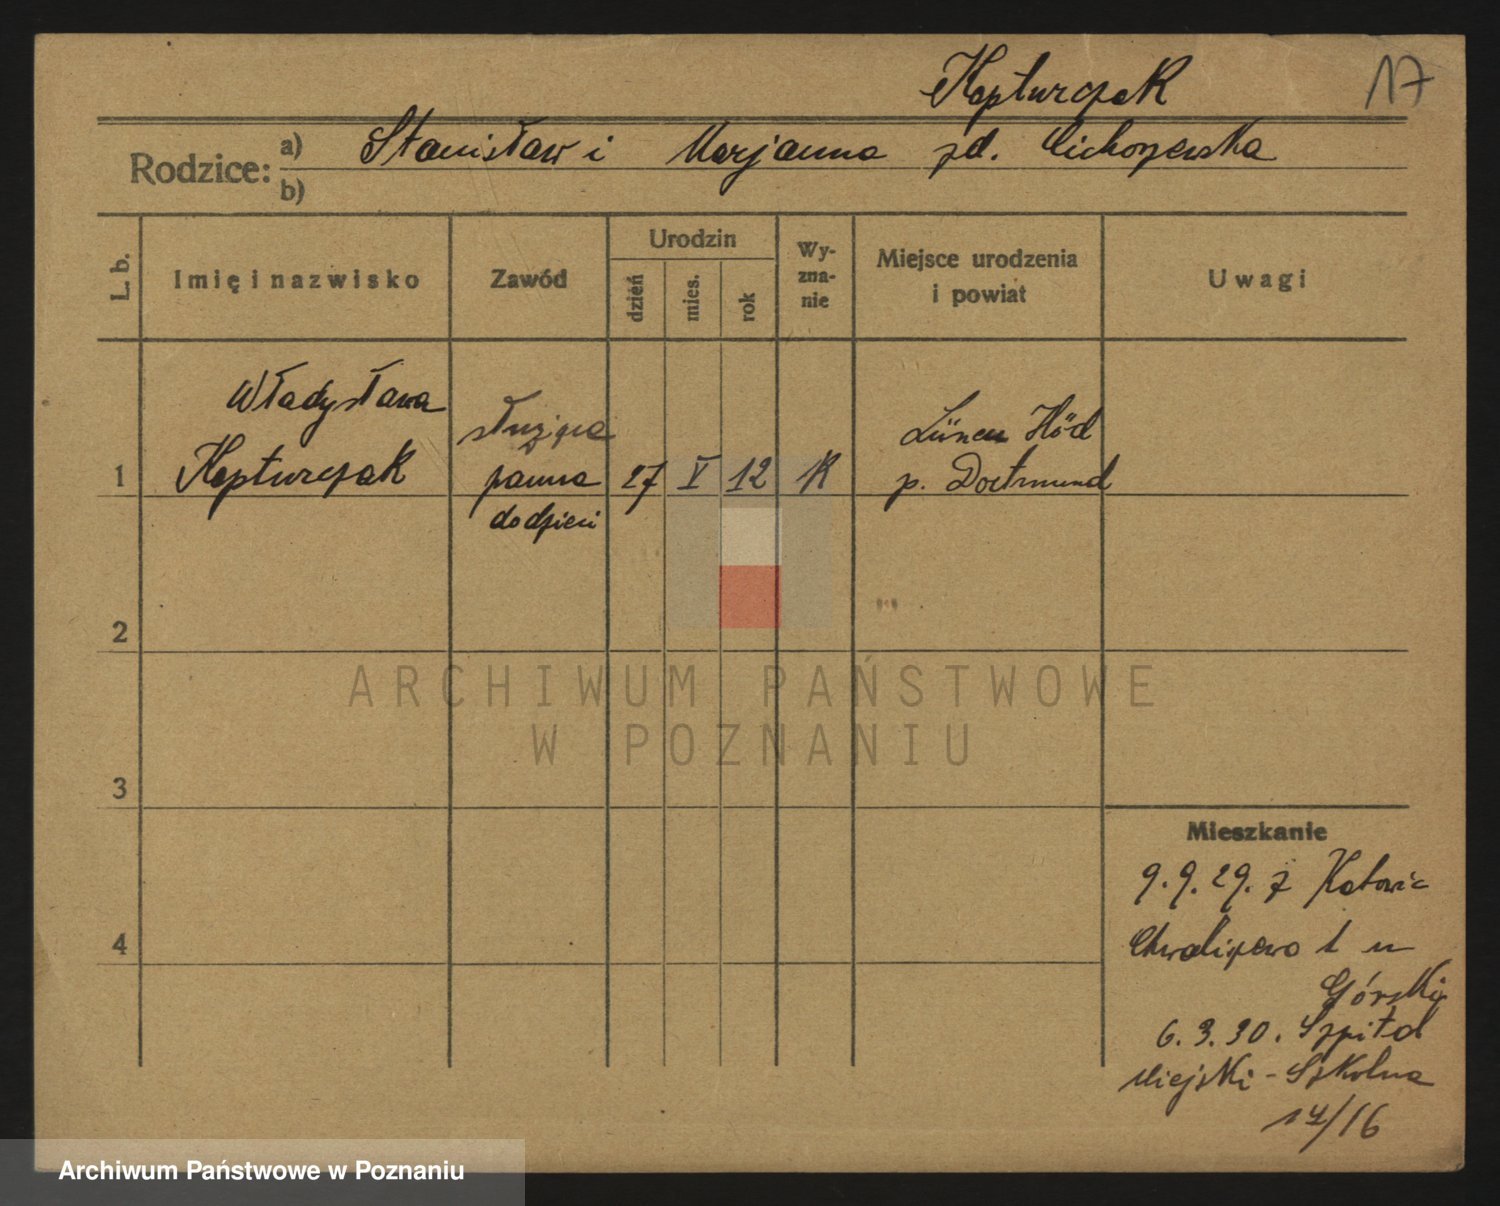 Kapturczak
17
Rodzice:
a) Stanisław i Marjanna zd. Cichoszewska
b)
L. b.
Imię i nazwisko
Zawód
Urodzin
dzień
mies.
rok
Wy-
zna-
nie
Miejsce urodzenia
i powiat
Uwagi
1
Władysława
Kapturczak
służąca
panna
do dzieci
27 V 12
K
Lünen Höd
p. Dortmund
2
3
4
Mieszkanie
9.9.29. z Katowic
Chwaliszewo 1 u
Górskiej
6.3.30. Szpital
Miejski - Szkolna
14/16
ARCHIWUM PAŃSTWOWE
W POZNANIU
Archiwum Państwowe w Poznaniu